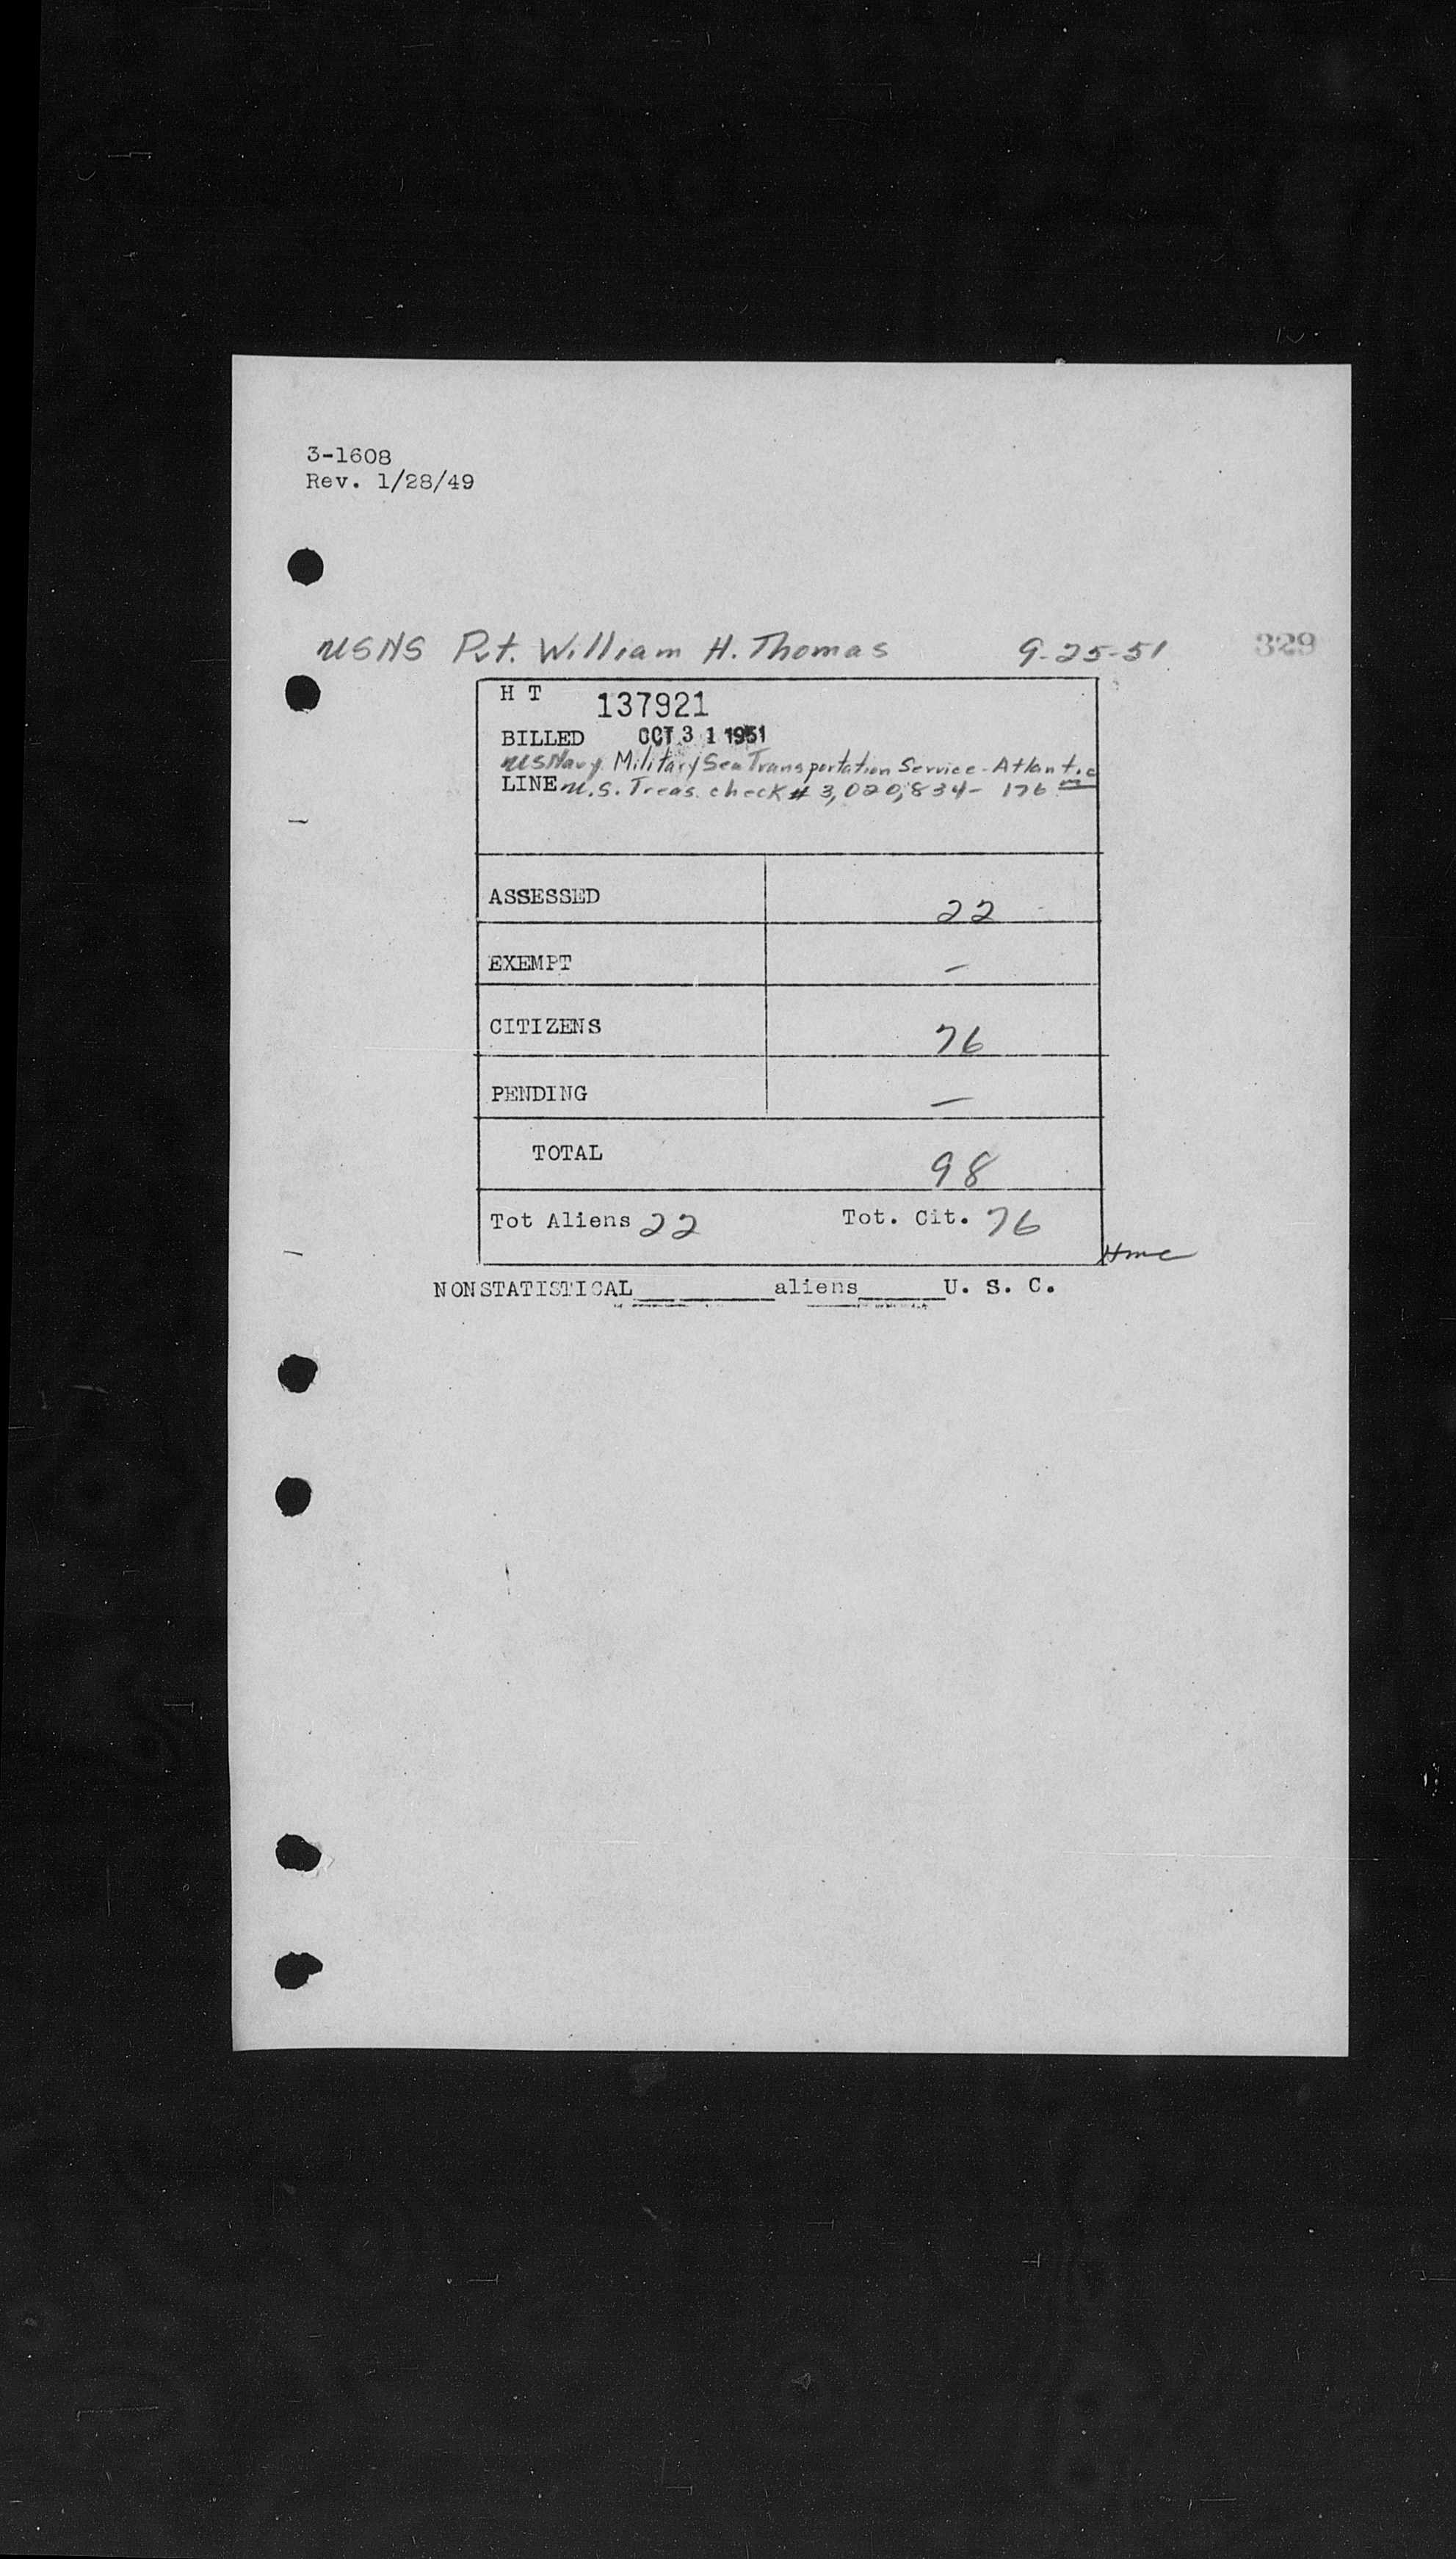 3-1608
Rev. 1/28/49
USNS Pvt. William H. Thomas 9-25-51 329
H T 137921
BILLED OCT 3 1 1951
US Navy Military Sea Transportation Service - Atlantic
LINE U.S. Treas. check # 3,020,834 - 176
ASSESSED 22
EXEMPT —
CITIZENS 76
PENDING —
TOTAL 98
Tot Aliens 22 Tot. Cit. 76
Hmc
NONSTATISTICAL__________aliens______U. S. C.